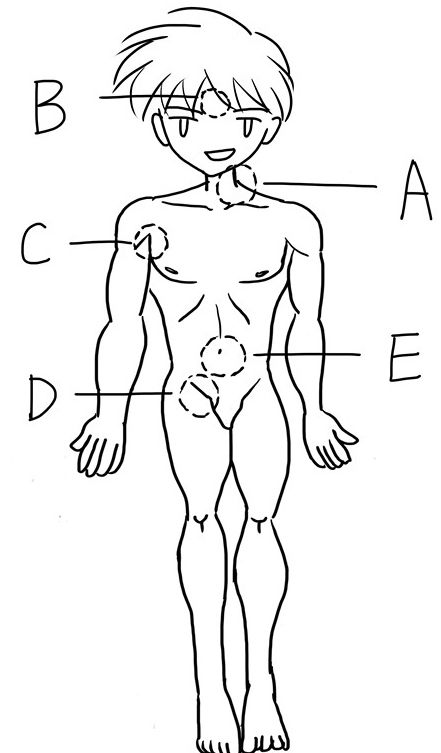 B
A
C
E
D